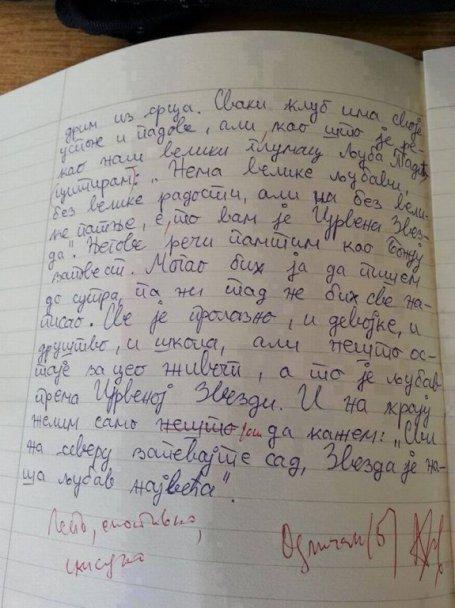 држим из срца. Сваки клуб има своје
успоне и падове, али, као што је ре-
као наш велики глумац Љуба Тадић,
цитирам: „Нема велике љубави,
без велике радости, али ни без вели-
ке патње, е, то вам је Црвена Звез-
да". Његове речи памтим као Божју
заповест. Могао бих ја да пишем
до сутра, па ни тад не бих све на-
писао. Све је пролазно, и девојке, и
друштво, и школа, али нешто ос-
таје за цео живот, а то је љубав
према Црвеној Звезди. И на крају
желим само нешто још да кажем: „Сви
на северу запевајте сад, Звезда је на-
ша љубав највећа".
Лепо, емотивно,
Одличан (5)